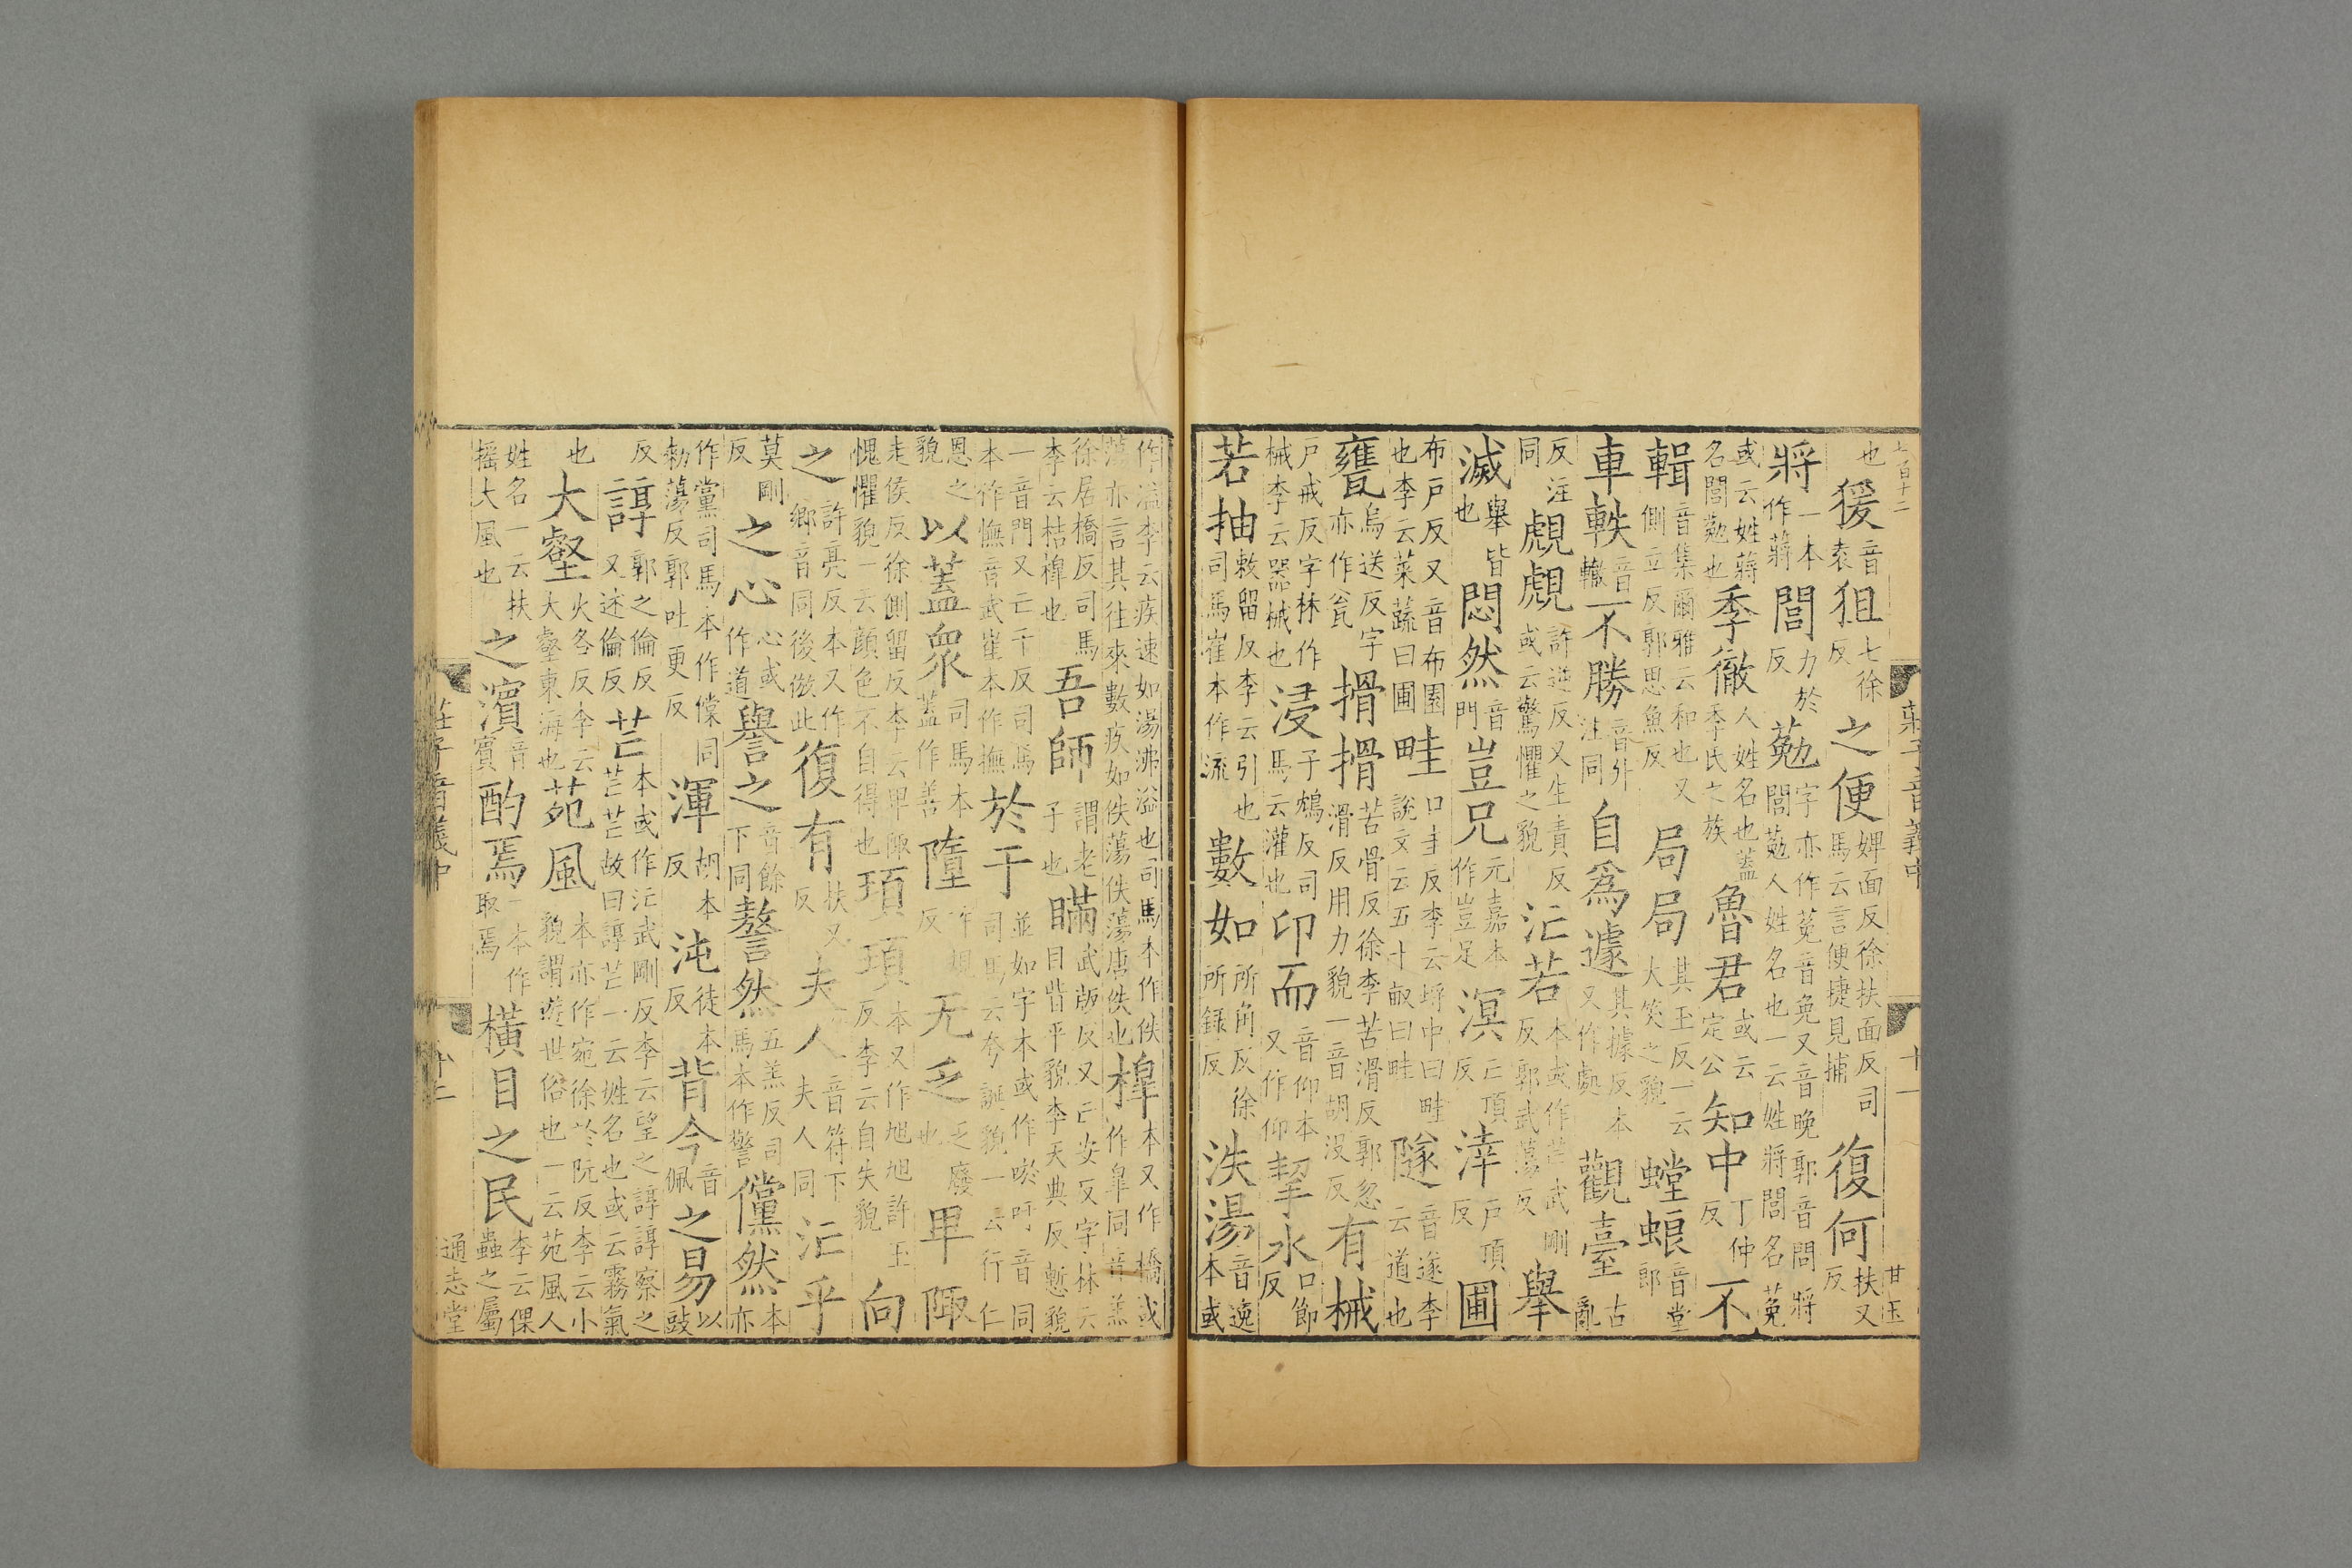 也猨音袁狙七徐反之便婢面反徐扶面反司馬云言便捷見捕復何扶又反
將一本作蔣閭力於反葂字亦作莬音免又音晚郭音問將閭葂人姓名也一云姓將閭名莬
或云姓蔣名閭葂也季徹人姓名也蓋季氏之族魯君或云定公知中丁仲反不
輯音集爾雅云和也又側立反郭思魚反局局其玉反一云大笑之貌螳蜋音堂郎
車軼音轍不勝音升注同自為遽其據反本又作處觀臺古亂
反注同覤覤許逆反又生責反或云驚懼之貌汒若本或作芒武剛反郭武蕩反舉
滅舉皆也悶然音門豈兄元嘉本作豈足溟亡頂反涬戶頂反圃
布戶反又音布園也李云菜蔬曰圃畦口圭反李云埒中曰畦說文云五十畝曰畦隧音遂李云道也
甕烏送反字亦作瓮搰搰苦骨反徐李苦滑反郭忽滑反用力貌一音胡沒反有械
戶戒反字林作械李云器械也浸子鴆反司馬云灌也卬而音仰本又作仰挈水口節反
若抽敕留反李云引也司馬崔本作流數如所角反徐所録反泆湯音逸本或
作溢李云疾速如湯沸溢也司馬本作佚蕩亦言其往來數疾如佚蕩佚蕩唐佚也槔本又作橋或作皐同音羔
徐居橋反司馬李云桔槔也吾師謂老子也瞞武版反又亡安反字林云目眥平貌李天典反慙貌
一音門又亡干反司馬本作憮音武崔本作撫於于並如字本或作唹吁音同司馬云夸誕貌一云行仁
恩之貌以蓋衆司馬本蓋作善隳許規反无乏乏廢也卑陬
走侯反徐側留反李云卑陬愧懼貌一云顏色不自得也頊頊本又作旭旭許玉反李云自失貌向
之許亮反本又作鄉音同後倣此復有扶又反夫人音符下夫人同汒乎
莫剛反之心心或作道譽之音餘下同謷然五羔反司馬本作警儻然本亦
作黨司馬本作儻同勑蕩反郭吐更反渾胡本反沌徒本反背今音佩之易以豉
反諄郭之倫反又述倫反芒本或作汒武剛反李云望之諄諄察之芒芒故曰諄芒一云姓名也或云霧氣
也大壑火各反李云大壑東海也苑風本亦作宛徐於阮反李云小貌謂遊世俗也一云苑風人
姓名一云扶搖大風也之濱音賓酌焉一本作取焉橫目之民李云倮蟲之屬
莊子音義中
十一
通志堂